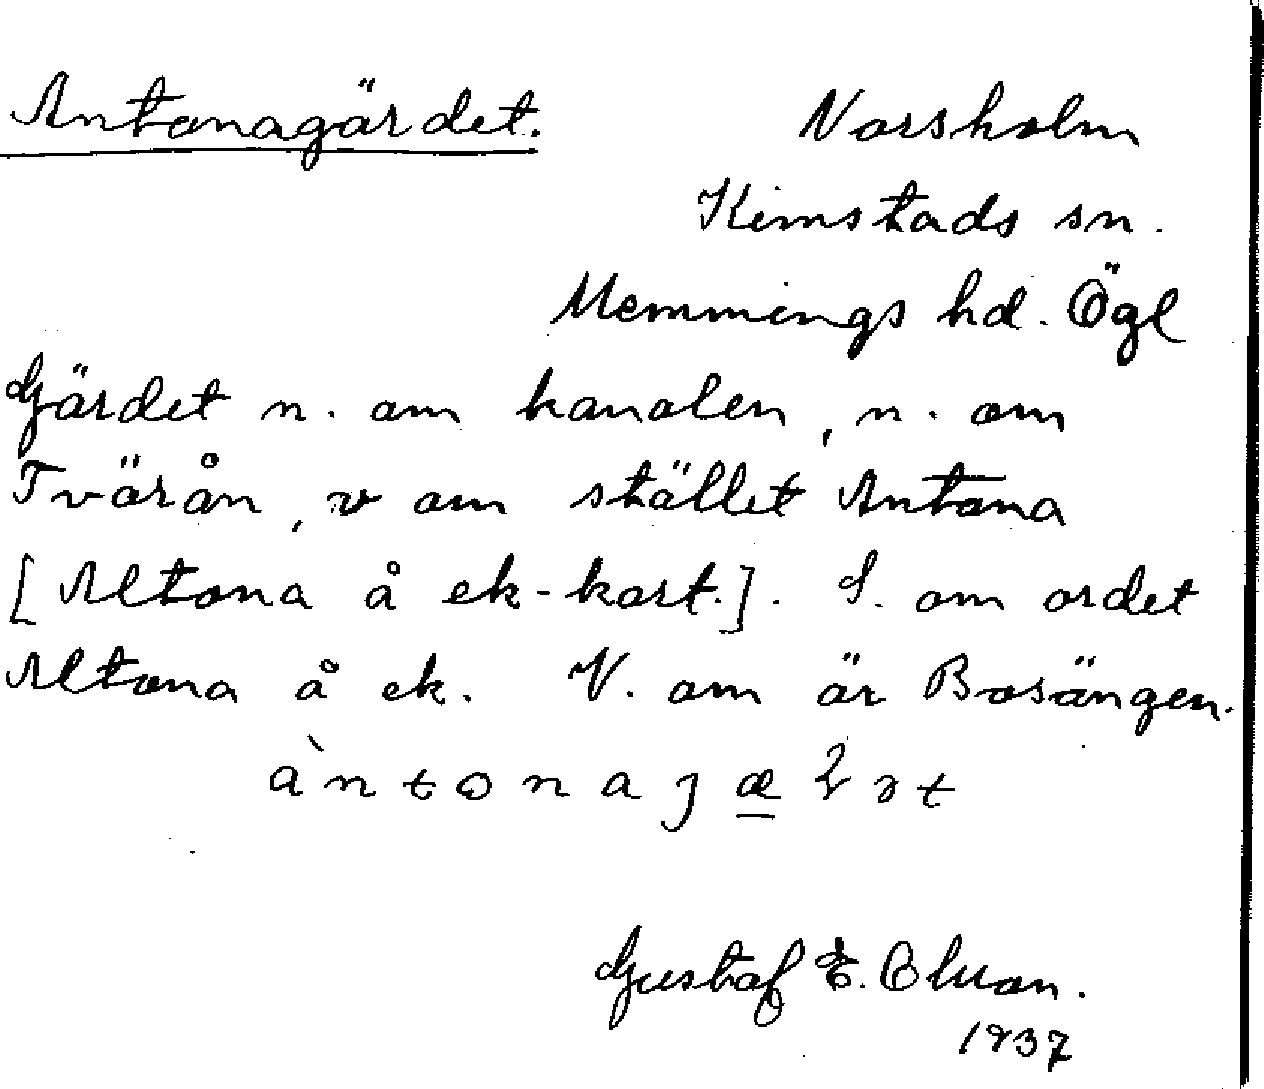 Antonagärdet.
Norsholm
Kimstads sn.
Memmings hd. Ögl
Gärdet n. om kanalen, n. om
Tvärån, v om stället Antona
[Altona å ek-kart.]. S. om ordet
Altona å ek. V. om är Bosängen.
Gustaf E.
1937